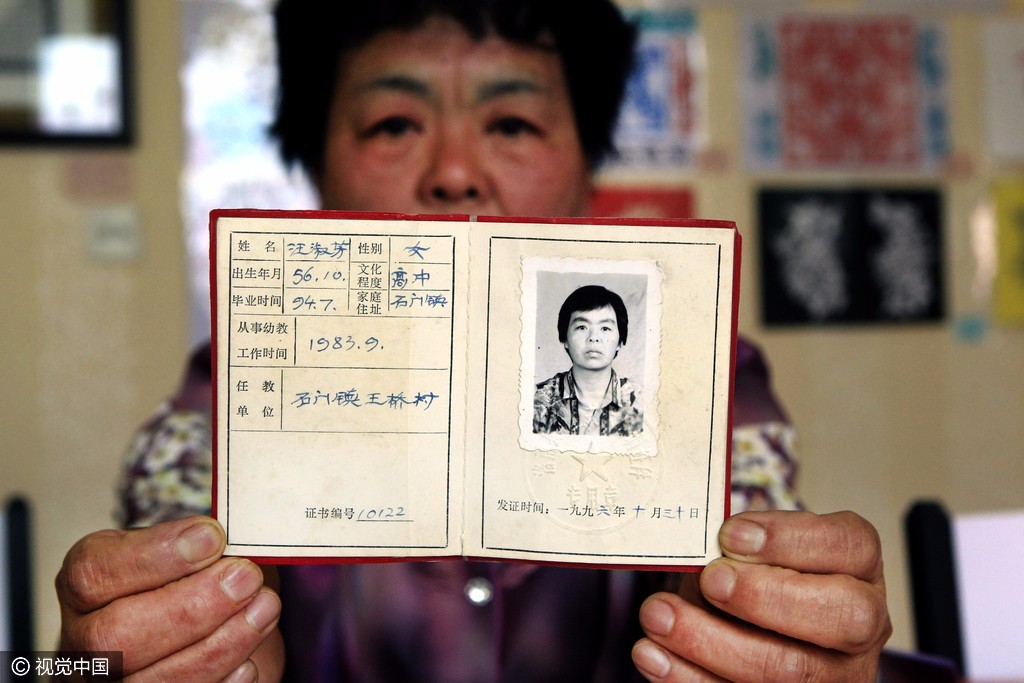 姓 名 汪淑芬 性别 女
出生年月 56.10. 文化程度 高中
毕业时间 94.7. 家庭住址 石门镇
从事幼教工作时间 1983.9.
任教单位 石门镇王桥村
证书编号 10122
专用章
发证时间：一九九六年十月三十日
© 视觉中国